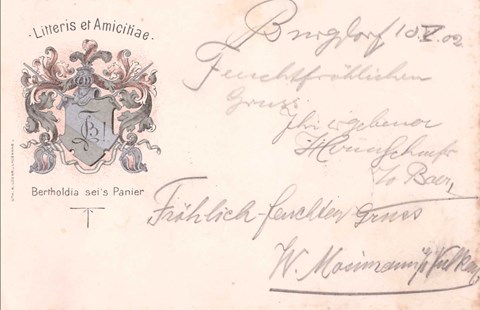 · Litteris et Amicitiae ·
Bertholdia sei's Panier
Burgdorf 10.V.02
Feuchtfröhlichen
Gruss
Ihr ergebener
v/o Baer,
Fröhlich-feuchten Gruss
W. Mosimann v/o